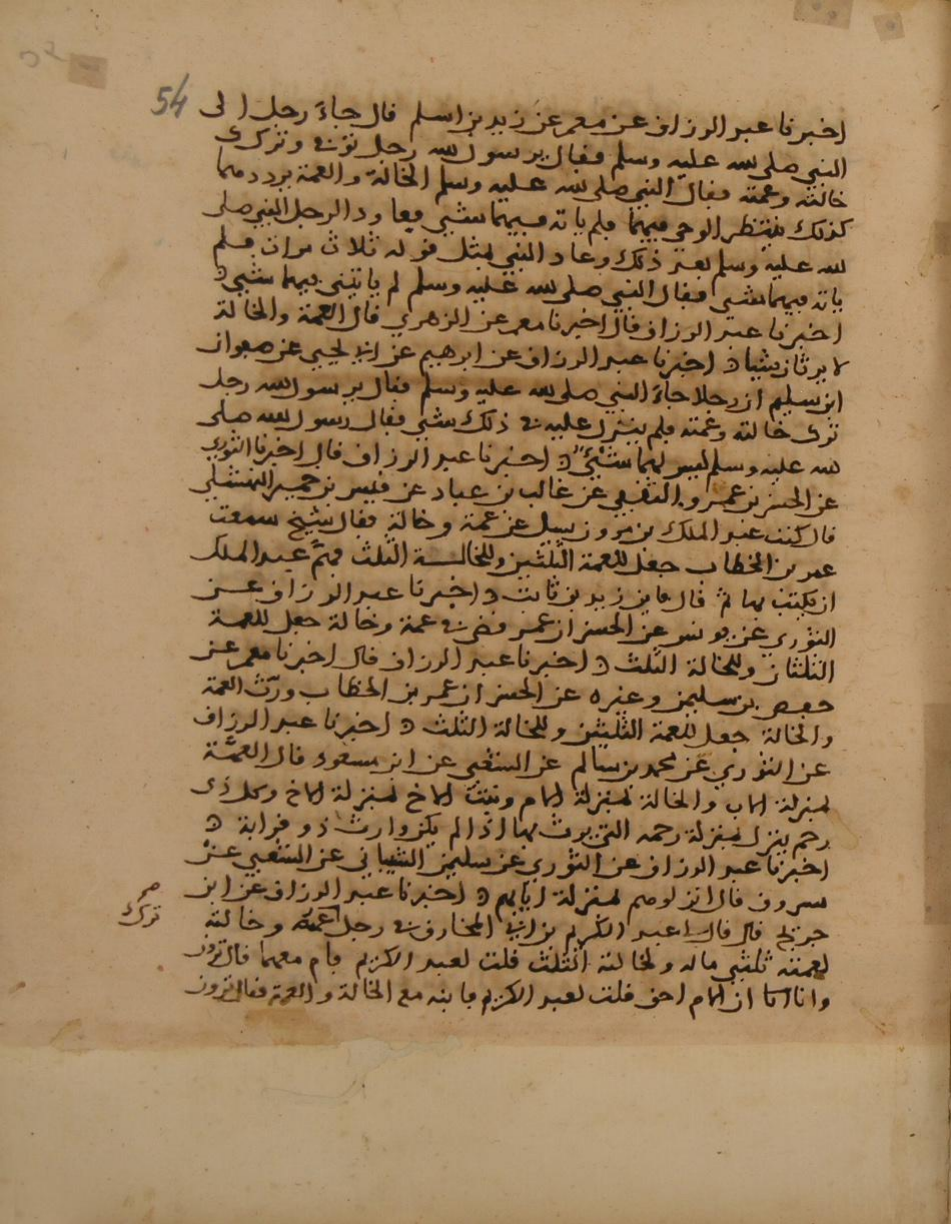 54
اخبرنا عبد الرزاق عن معمر عن زيد بن اسلم قال جاء رجل الى
النبي صلى الله عليه وسلم فقال يرسول الله رجل توفي وترك
خالته وعمته فقال النبي صلى الله عليه وسلم الخالة والعمة يرددهما
كذلك ينتظر الوحي فيهما فلم ياته فيهما شي فعاود الرجل النبي صلى
الله عليه وسلم بعد ذلك وعاد النبي لمثل قوله ثلاث مرات فلم
ياته فيهما شي فقال النبي صلى الله عليه وسلم لم ياتيني فيهما شي
اخبرنا عبد الرزاق قال اخبرنا معمر عن الزهري قال العمة والخالة
لا يرثان شيا اخبرنا عبد الرزاق عن ابرهيم عن ابي يحيى عن صفوان
ابن سليم ان رجلا جاء النبي صلى الله عليه وسلم فقال يرسول الله رجل
ترك خالته وعمته فلم ينزل عليه في ذلك شي فقال رسول الله صلى
الله عليه وسلم ليس لهما شيء اخبرنا عبد الرزاق قال اخبرنا الثوري
عن الحسن بن عمرو الفقيمي عن غالب بن عباد عن قيس بن حبتر النهشلي
قال كتب عبد الملك بن مروان يسل عن عمة وخالة فقال شيخ سمعت
عمر بن الخطاب جعل للعمة الثلثين وللخالة الثلث فهم عبد الملك
ان يكتب بها ثم قال فاين زيد بن ثابت اخبرنا عبد الرزاق عن
الثوري عن يونس عن الحسن ان عمر قضى في عمة وخالة جعل للعمة
الثلثان وللخالة الثلث اخبرنا عبد الرزاق قال اخبرنا معمر عن
حفص بن سليمن وغيره عن الحسن ان عمر بن الخطاب ورث العمة
والخالة جعل للعمة الثلثين وللخالة الثلث اخبرنا عبد الرزاق
عن الثوري عن محمد بن سالم عن الشعبي عن ابن مسعود قال العمة
بمنزلة الاب والخالة بمنزلة الام وبنت الاخ بمنزلة الاخ وكل ذي
رحم ينزل بمنزلة رحمه التي يرث بها اذا لم يكن وارث ذو قرابة
اخبرنا عبد الرزاق عن الثوري عن سليمن الشيباني عن الشعبي عن
مسروق قال انزلوهم بمنزلة ابايهم اخبرنا عبد الرزاق عن ابن
جريج قال قال لي عبد الكريم بن ابي المخارق في رجل عمته وخالته
ترك
لعمته ثلثي ماله ولخالته الثلث قلت لعبد الكريم فام معهما قال
وانا ان الام احق قلت لعبد الكريم فابنه مع الخالة والعمة فقال